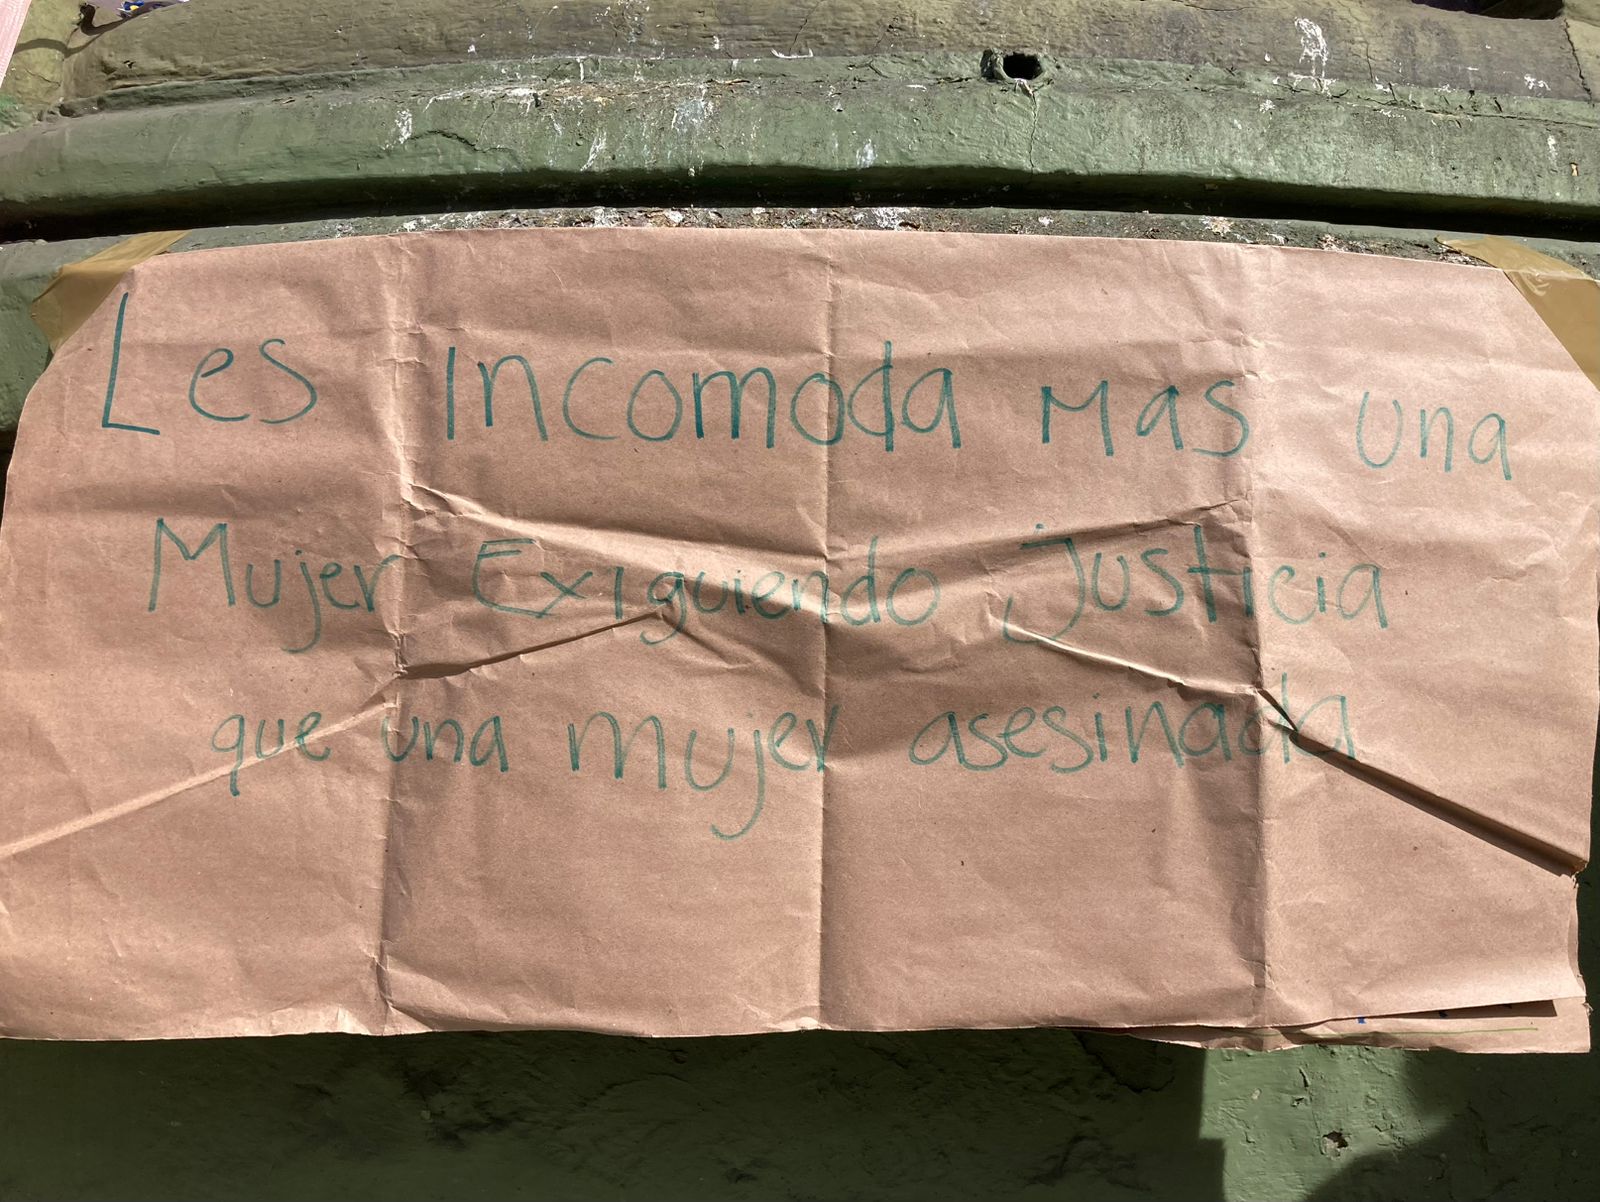 Les Incomoda Mas una
Mujer Exiguiendo Justicia
que una mujer asesinada